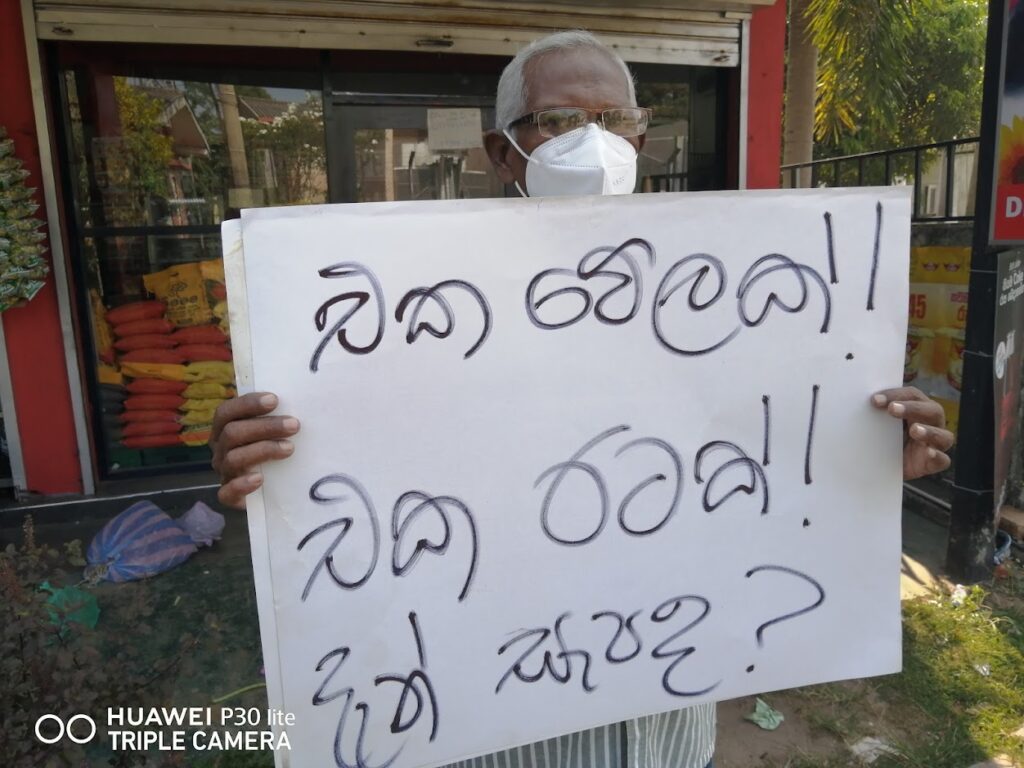 එක වේලක්!!
එක රටක්!!
දැන් සැපද?
45
D
HUAWEI P30 lite
TRIPLE CAMERA